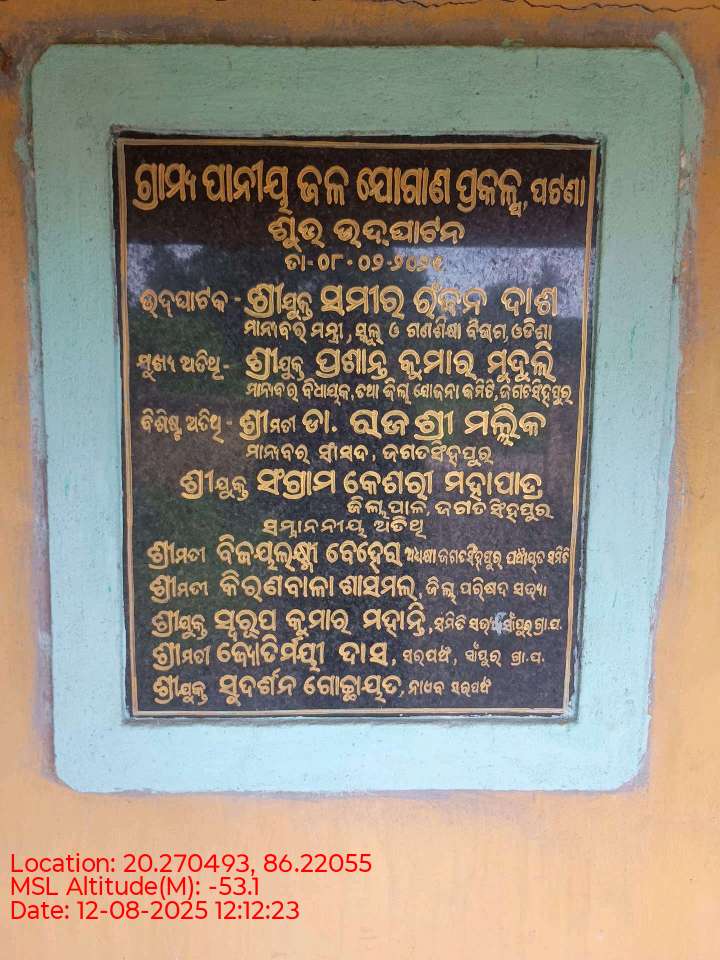 ଗ୍ରାମ୍ୟ ପାନୀୟ ଜଳ ଯୋଗାଣ ପ୍ରକଳ୍ପ, ପଟଣା
ଶୁଭ ଉଦ୍‌ଘାଟନ
ତା-୦୮-୦୨-୨୦୨୧
ଉଦ୍‌ଘାଟକ - ଶ୍ରୀଯୁକ୍ତ ସମୀର ରଂଜନ ଦାଶ
ମାନ୍ୟବର ମନ୍ତ୍ରୀ, ସ୍କୁଲ ଓ ଗଣଶିକ୍ଷା ବିଭାଗ, ଓଡିଶା
ମୁଖ୍ୟ ଅତିଥି - ଶ୍ରୀଯୁକ୍ତ ପ୍ରଶାନ୍ତ କୁମାର ମୁଦୁଲି
ମାନ୍ୟବର ବିଧାୟକ, ତଥା ଜିଲ୍ଲା ଯୋଜନା କମିଟି, ଜଗତସିଂହପୁର
ବିଶିଷ୍ଟ ଅତିଥି - ଶ୍ରୀମତୀ ଡା. ରାଜଶ୍ରୀ ମଲ୍ଲିକ
ମାନ୍ୟବର ସାଂସଦ, ଜଗତସିଂହପୁର
ଶ୍ରୀଯୁକ୍ତ ସଂଗ୍ରାମ କେଶରୀ ମହାପାତ୍ର
ଜିଲ୍ଲାପାଳ, ଜଗତସିଂହପୁର
ସମ୍ମାନନୀୟ ଅତିଥି
ଶ୍ରୀମତୀ ବିଜୟଲକ୍ଷ୍ମୀ ବେହେରା ଅଧ୍ୟକ୍ଷା ଜଗତସିଂହପୁର ପଞ୍ଚାୟତ ସମିତି
ଶ୍ରୀମତୀ କିରଣବାଳା ଶାସମଲ, ଜିଲ୍ଲା ପରିଷଦ ସଭ୍ୟା
ଶ୍ରୀଯୁକ୍ତ ସ୍ୱରୂପ କୁମାର ମହାନ୍ତି, ସମିତି ସଭ୍ୟ ସାଁପୁର ଗ୍ରା.ପ.
ଶ୍ରୀମତୀ ଜ୍ୟୋତିର୍ମୟୀ ଦାସ, ସରପଞ୍ଚ, ସାଁପୁର ଗ୍ରା.ପ.
ଶ୍ରୀଯୁକ୍ତ ସୁଦର୍ଶନ ଗୋଚ୍ଛାୟତ, ନାଏବ ସରପଞ୍ଚ
Location: 20.270493, 86.22055
MSL Altitude(M): -53.1
Date: 12-08-2025 12:12:23